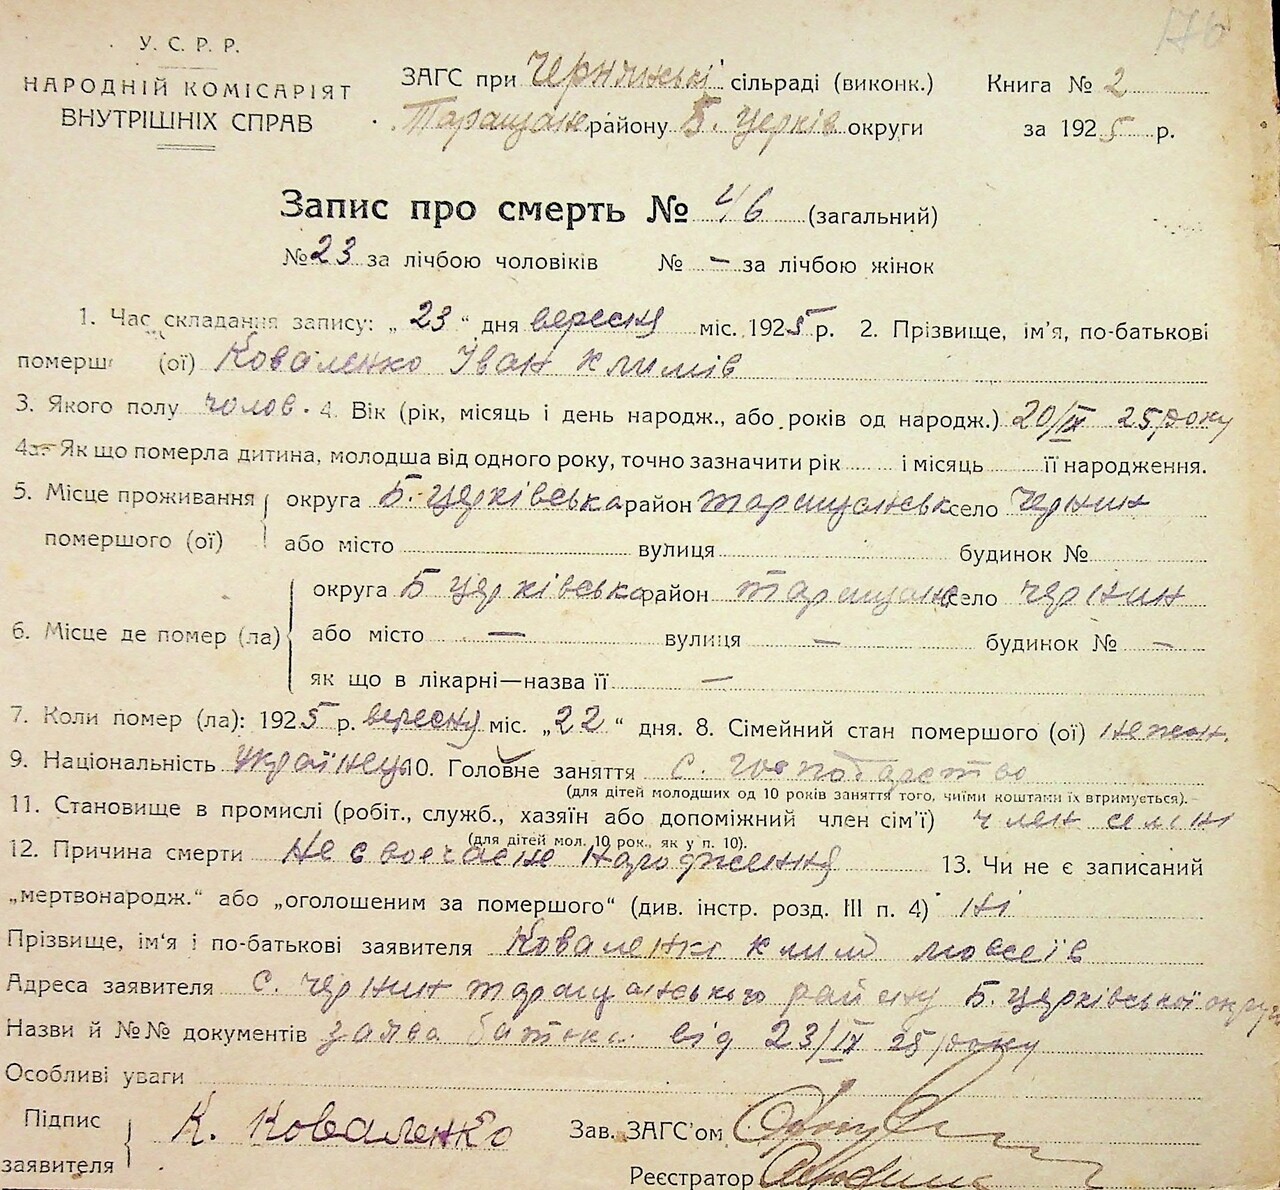 176
У. С. Р. Р.
НАРОДНІЙ КОМІСАРІЯТ
ВНУТРІШНІХ СПРАВ
ЗАГС при Чернинські сільраді (виконк.)
Таращан району Б. Церків округи
Книга № 2
за 1925 р.
Запис про смерть № 46 (загальний)
№ 23 за лічбою чоловіків № – за лічбою жінок
1. Час складання запису: „ 23 “ дня вересня міс. 1925 р. 2. Прізвище, ім'я, по-батькові
померш (ої) Коваленко Іван Климів
3. Якого полу чолов. 4. Вік (рік, місяць і день народж., або років од народж.) 20/ІХ 25 року
4а. Як що померла дитина, молодша від одного року, точно зазначити рік і місяць її народження.
5. Місце проживання помершого (ої) округа Б. Церківська район Таращанськ село Чернин
або місто вулиця будинок №
6. Місце де помер (ла) округа Б Церківська район Таращанс село Чернин
або місто — вулиця — будинок № —
як що в лікарні—назва її —
7. Коли помер (ла): 1925 р. вересня міс. „22“ дня. 8. Сімейний стан помершого (ої) нежон.
9. Національність Українец 10. Головне заняття с. господарство
(для дітей молодших од 10 років заняття того, чиїми коштами їх втримується).
11. Становище в промислі (робіт., служб., хазяїн або допоміжний член сім'ї) член семні
(для дітей мол. 10 рок., як у п. 10).
12. Причина смерти Не своєчасне народження 13. Чи не є записаний
„мертвонародж.“ або „оголошеним за помершого“ (див. інстр. розд. III п. 4) ні
Прізвище, ім'я і по-батькові заявителя Коваленко Клим Мосеїв
Адреса заявителя с. Чернин Таращанського району Б. Церківської округи
Назви й №№ документів заява батька від 23/ІХ 25 року
Особливі уваги
Підпис заявителя К. Коваленко
Зав. ЗАГС'ом
Реєстратор